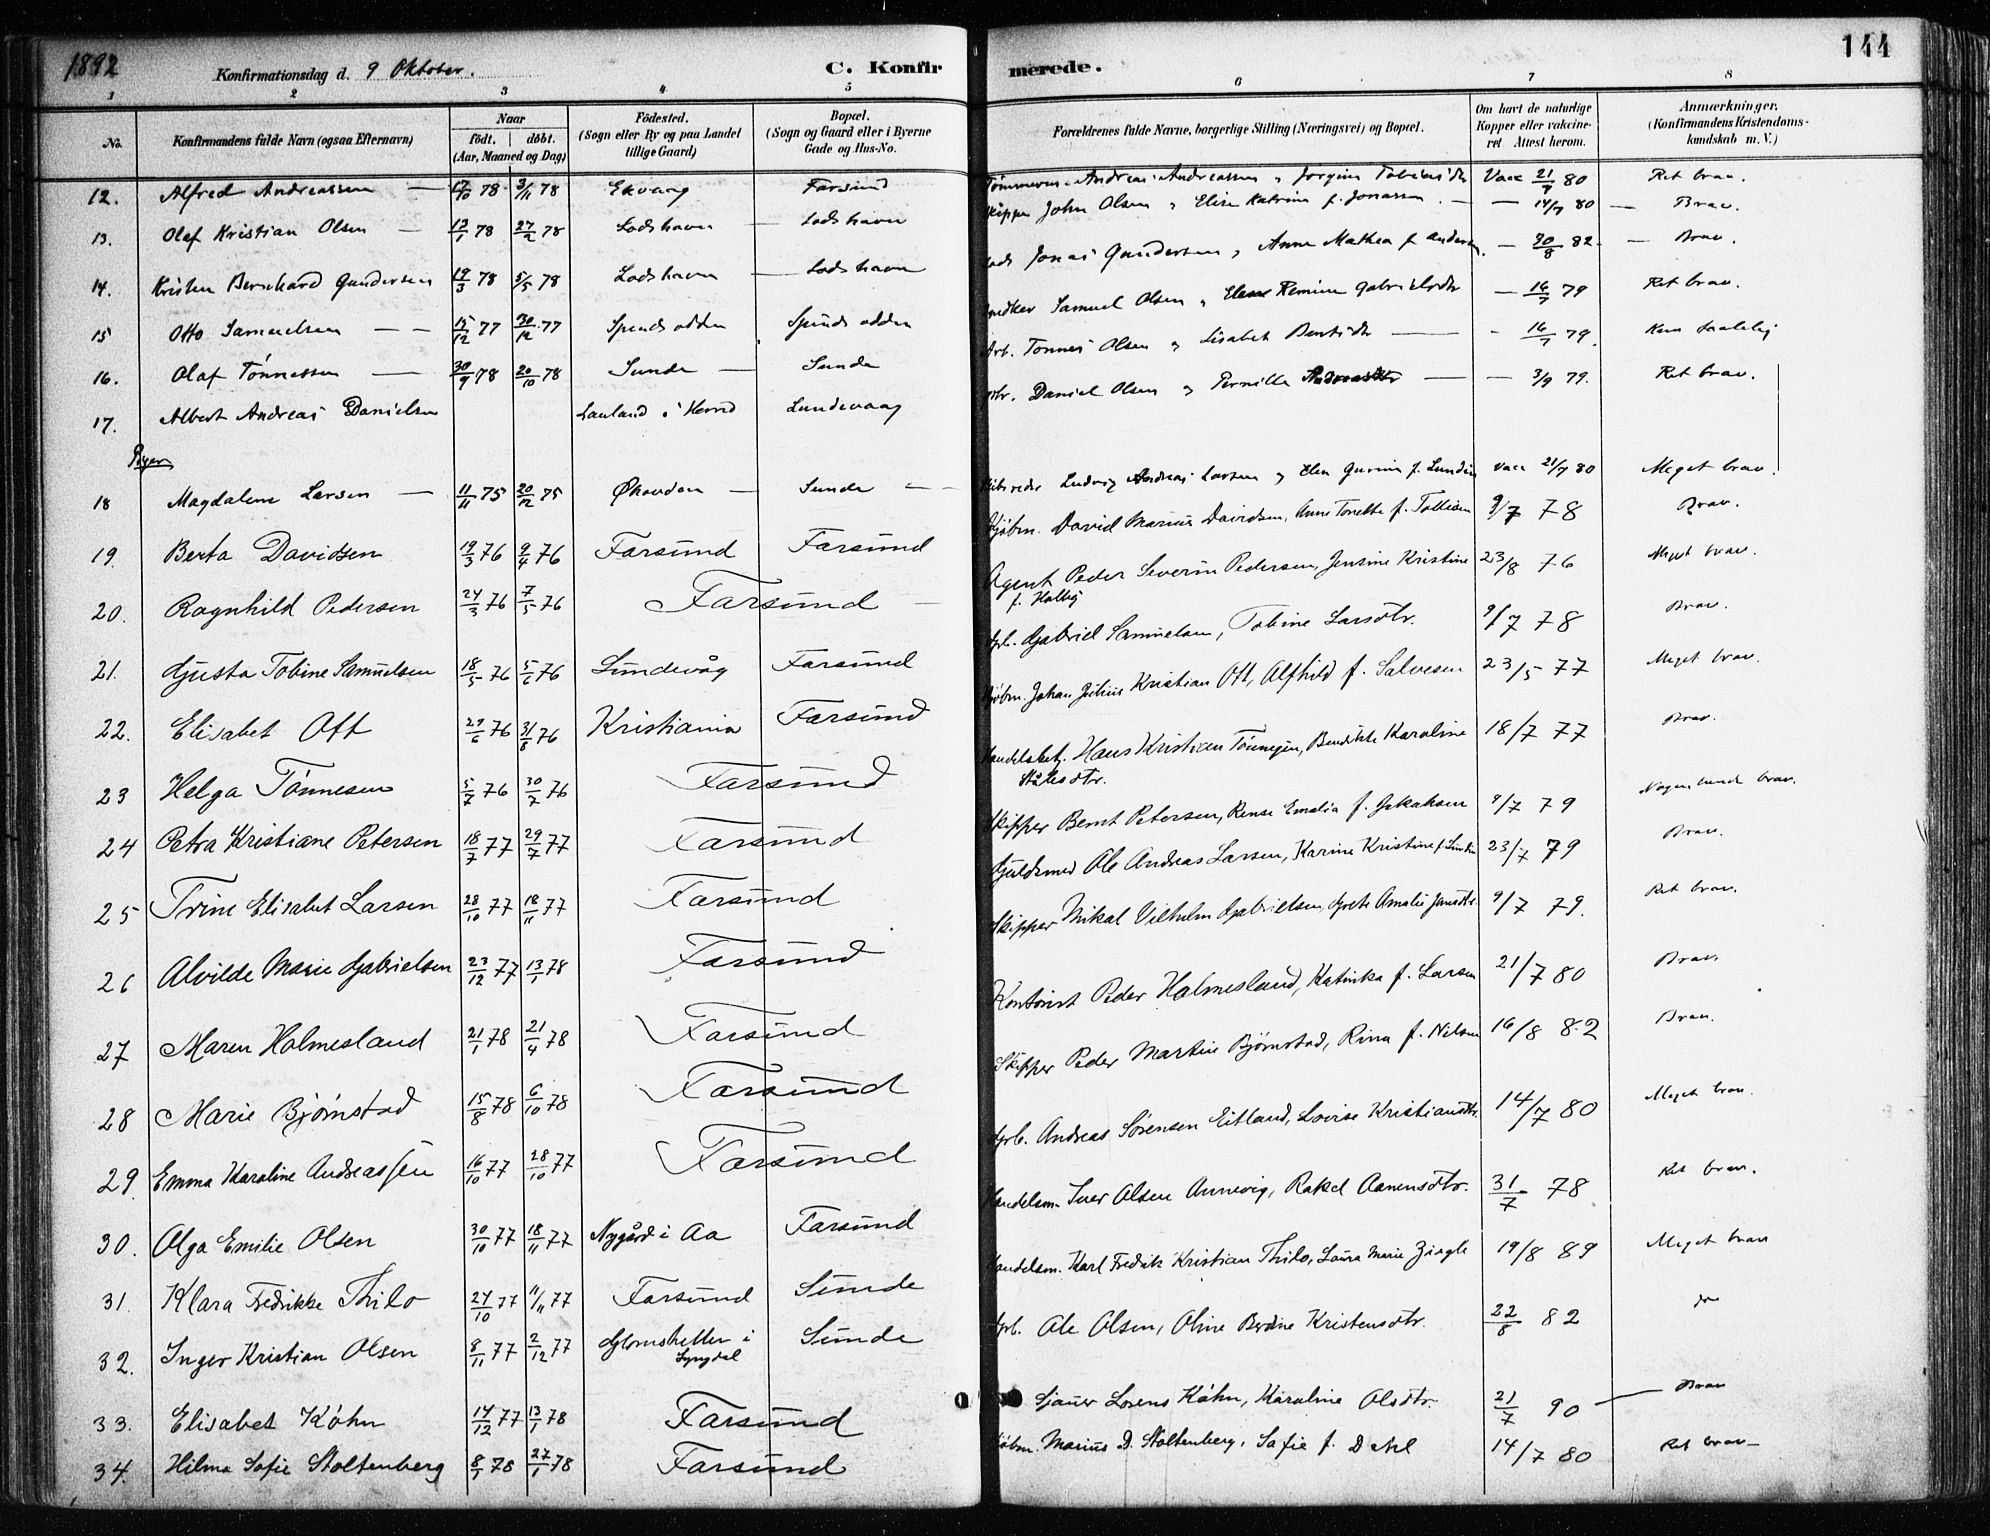 1892 Konfirmationsdag d. 9 Oktober. C. Konfir merede. 144
1 2 3 4 5 6 7 8
No. Konfirmandens fulde Navn (ogsaa Efternavn) Naar født. døbt. (Aar, Maaned og Dag) Fødested. (Sogn eller By og paa Landet tillige Gaard) Bopæl. (Sogn og Gaard eller i Byerne Gade og Hus-No. Forældrenes fulde Navne, borgerlige Stilling (Næringsvei) og Bopæl. Om havt de naturlige Kopper eller vakcineret Attest herom. Anmærkninger. (Konfirmandens Kristendomskundskab m. V.)
12. Alfred Andreassen — 78 3/11 78 Ekvaag Farsund Andreas Andreassen, Jørgine Vacc 21/7 80 Ret brav.
13. Olaf Kristian Olsen — 13/1 78 27/2 78 Lodshavn — Lodshavn John Olsen, Elise Katrine f. Jonassen — 14/7 80 — Brav.
14. Kristen Bernhard Gundersen 19/3 78 5/5 78 Lodshavn — Lodshavn Jonas Gundersen, Anne Mathea f. — 30/8 82 — Brav.
15 Otto Samuelsen — — 15/12 77 30/12 77 Spindsodden Spindsodden Samuel Olsen — 16/7 79 Ret brav.
16. Olaf Tönnessen — 30/9 78 20/10 78 Sunde — Sunde Arb. Tönnes Olsen og Lisabet — - 16/7 79. Kun
17. Albert Andreas Danielsen Lauland i Lundevaag Daniel Olsen og Pernille — — 3/9 79. Ret brav.
Byen
18 Magdalene Larsen — 11/11 75 20/12 75 — Sunde — Ludvig Andreas Larsen, f. vacc 21/7 80 Meget brav.
19. Berta Davidsen 19/3 76 9/4 76 Farsund Farsund Kjøbm. David Marius Davidsen, Anne f. 9/7 78 Brav.
20. Ragnhild Pedersen 24/3 76 7/5 76 Farsund — Agent Peder Severin Pedersen, Jensine Kristine f. 23/8 76 Meget brav.
21. Gusta Tobine Samuelsen 18/5 76 5/6 76 Lundevåg Farsund Arb. Gabriel Samuelsen, Tobine Larsdtr. 9/7 78 Brav.
22. Elisabet Ott 29/6 76 31/8 76 Kristiania Farsund Kjøbm. Johan Julius Kristian Ott, Alfhild f. Salvesen 23/5 77 Meget brav.
23 Helga Tönnesen 5/7 76 30/7 76 Farsund Handelsbetj. Hans Kristian Tönnesen, Karoline Ståles dtr. 18/7 77 Brav.
24 Petra Kristiane Petersen 18/7 77 29/7 77 Farsund Skipper Bernt Petersen, Emalia f. Jakobsen 9/7 79 Nogenlunde brav.
25 Trine Elisabet Larsen 28/10 77 18/11 77 Farsund Guldsmed Ole Andreas Larsen, Karine Kristine f. 23/7 79 Brav.
26 Alvilde Marie Gabrielsen 23/12 77 13/1 78 Farsund Skipper Mikal Vilhelm Gabrielsen, Grete Amalie 9/7 79. Ret brav.
27 Maren Holmesland 21/1 78 21/4 78 Farsund Kontorist Peder Holmesland, Katinka f. Larsen 21/7 80 Brav.
28 Marie Bjørnstad 15/8 78 6/10 78 Farsund Skipper Peder Martin Bjørnstad, Rina f. Nilsen 16/8 82 Brav.
29. Emma Karoline Andreassen 16/10 77 28/10 77 Farsund Arb. Andreas Sørensen Eitland, Lovise Kristiansdtr. 14/7 80 Meget brav.
30. Olga Emilie Olsen 30/10 77 18/11 77 Nygård i Aa Farsund Handelsm. Iver Olsen Annevig, Rakel Aanensdtr. 31/7 78 Ret brav.
31. Klara Fredrikke Thilo 27/10 77 11/11 77 Farsund Sunde Handelsm. Karl Fredrik Kristian Thilo, Laura Marie 19/8 89 Meget brav
32. Inger Kristian Olsen 8/11 77 2/12 77 i Lyngdal Sunde Arb. Ole Olsen, Oline Kristensdtr. 22/8 82 do
33. Elisabet Köhn 14/12 77 13/1 78 Farsund Lorens Köhn, Karoline Olsdtr. 21/7 90 — Brav
34. Hilma Sofie Stoltenberg 8/1 78 27/1 78 Farsund Kjøbm. Marius D. Stoltenberg, Sofie f. 14/7 80 Ret brav—